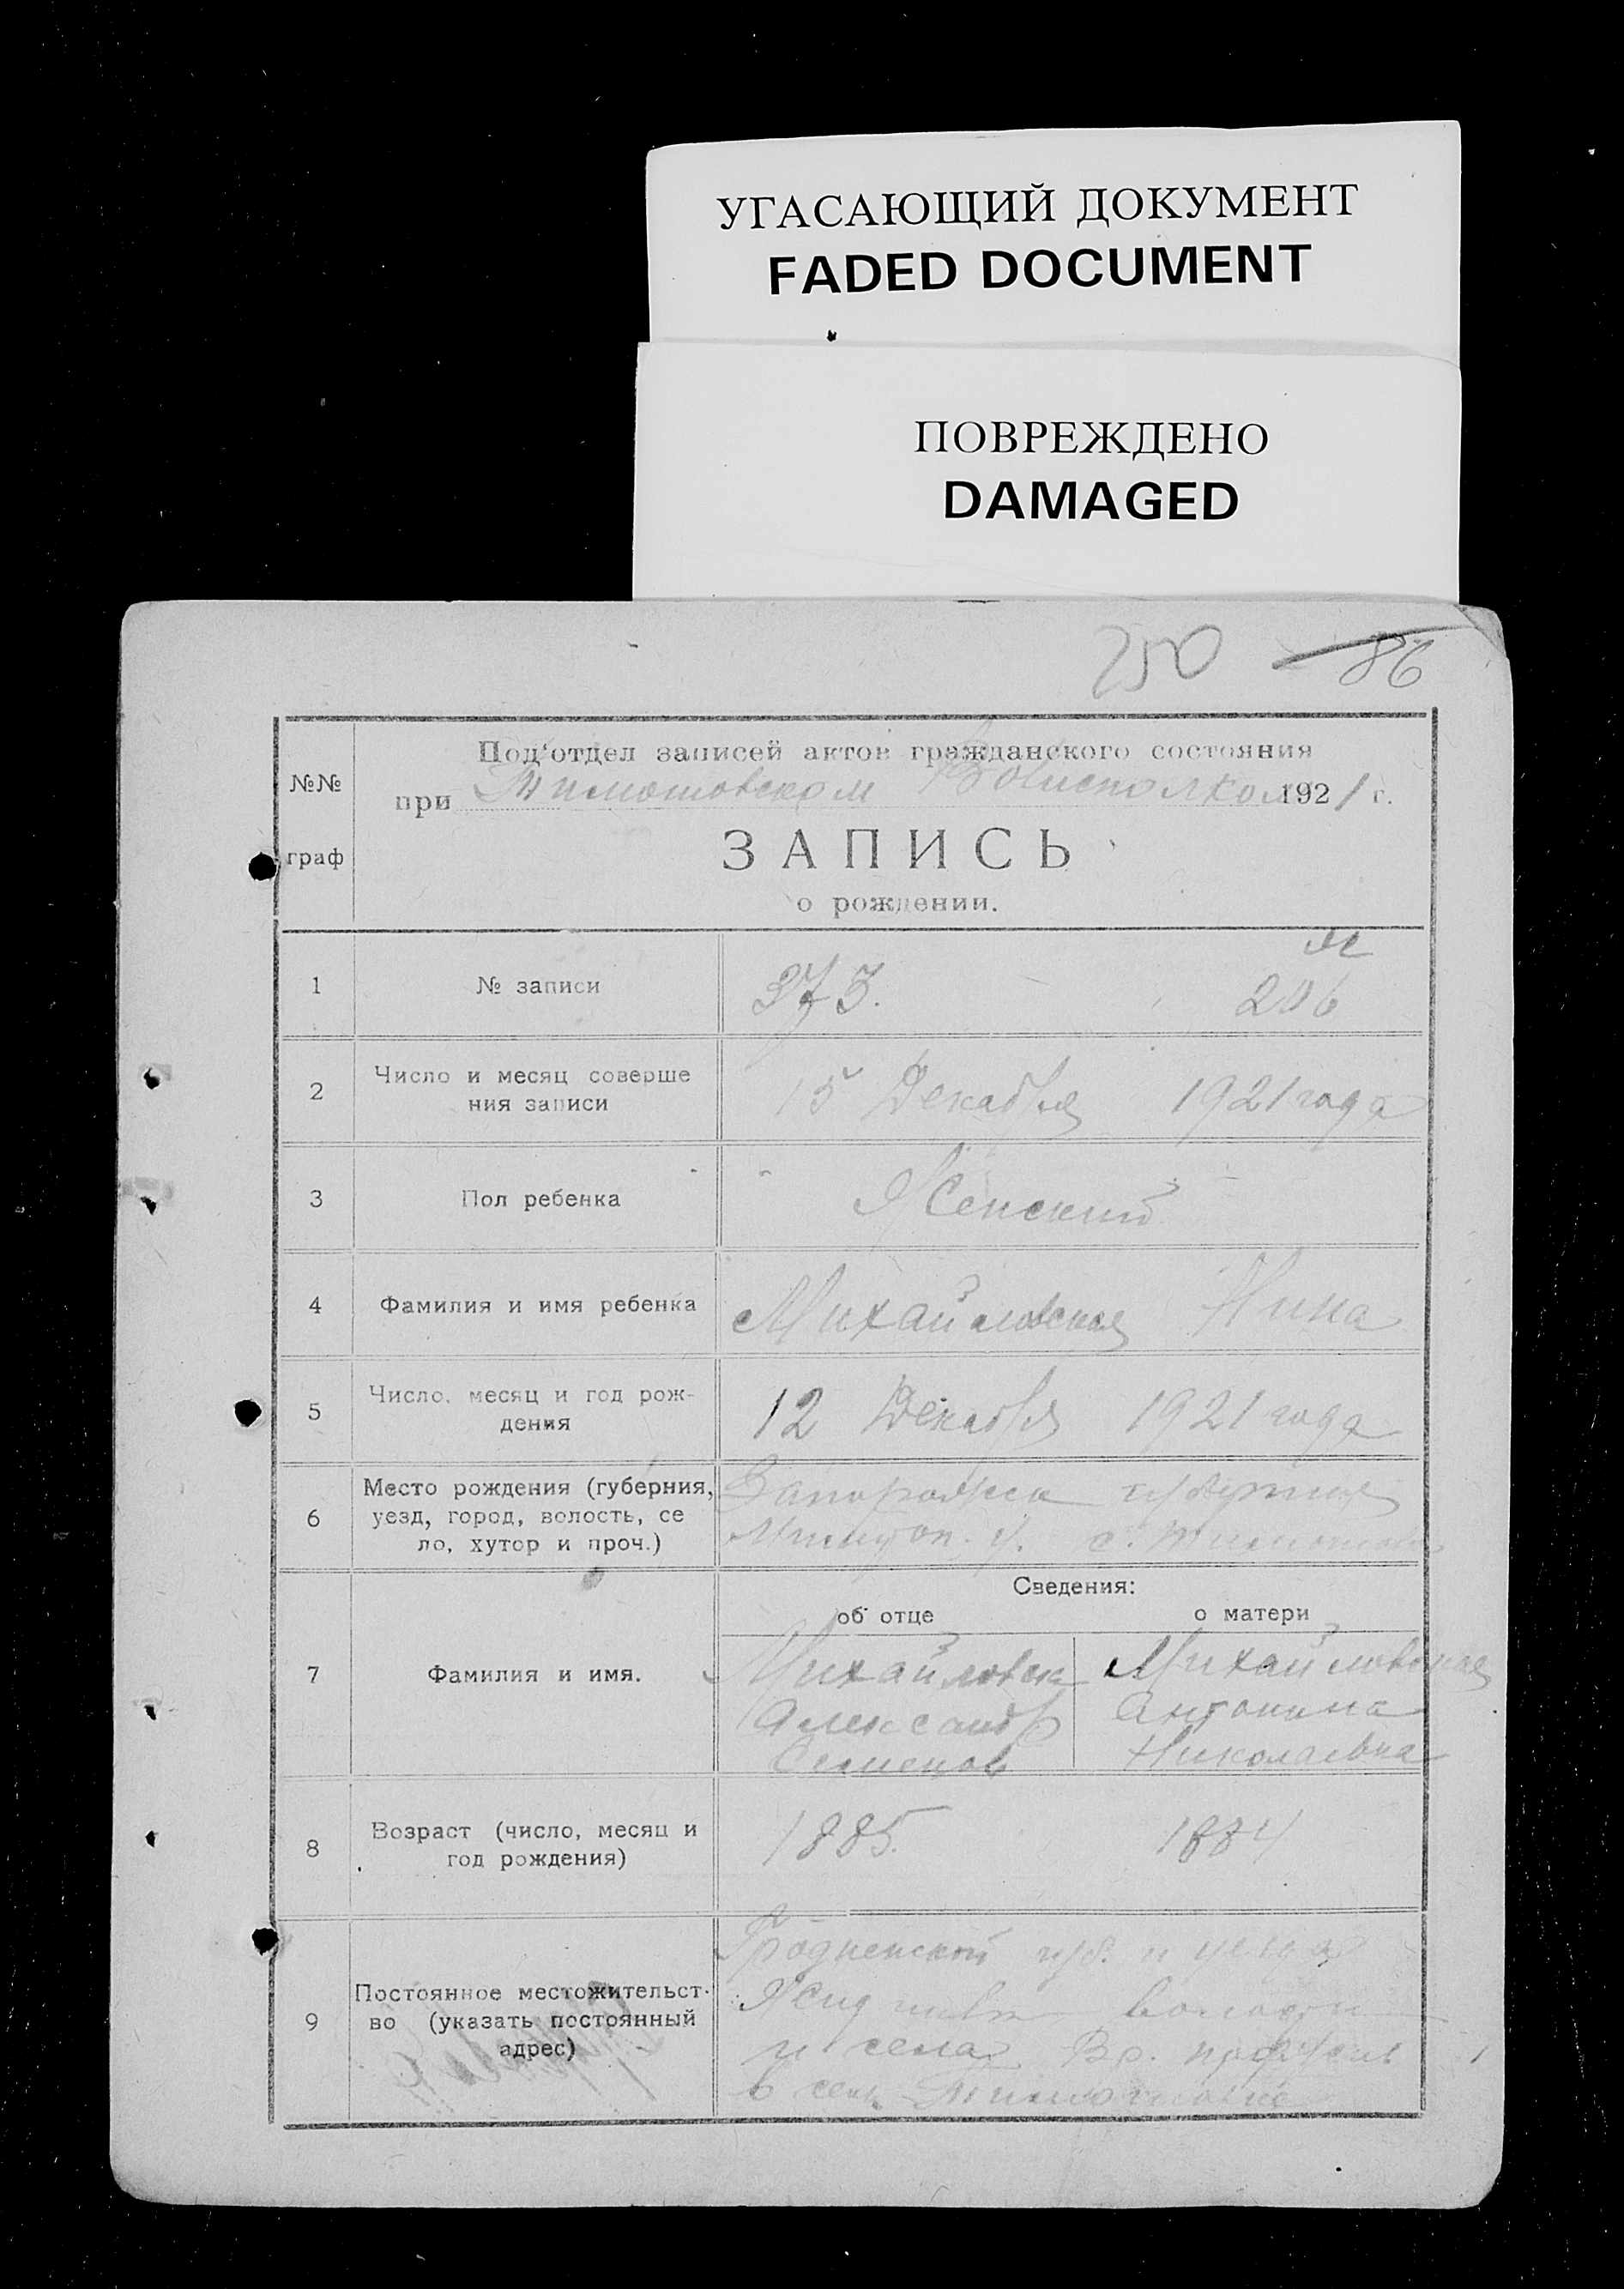 УГАСАЮЩИЙ ДОКУМЕНТ
FADED DOCUMENT
ПОВРЕЖДЕНО
DAMAGED
250 86
№№
граф
Под‘отдел записей актов гражданского состояния
при Тимошовском Волисполком 1921 г.
ЗАПИСЬ
о рождении.
1 № записи 373. 206
2 Число и месяц соверше
ния записи 15 Декабря 1921 года
3 Пол ребенка Женский
4 Фамилия и имя ребенка Михайловская Нина
5 Число, месяц и год рож-
дения 12 Декабря 1921 года
6 Место рождения (губерния,
уезд, город, волость, се
ло, хутор и проч.)
Запорожск губерния
у. с.
Сведения:
об отце о матери
7 Фамилия и имя.
Михайловск Михайловская
Александр Антонина
Семенов Николаевна
8 Возраст (число, месяц и
год рождения) 1885. 1884
9 Постоянное местожительст-
во (указать постоянный
адрес)
Гродненской губ. и уезда
волости
и села Вр.
в селе